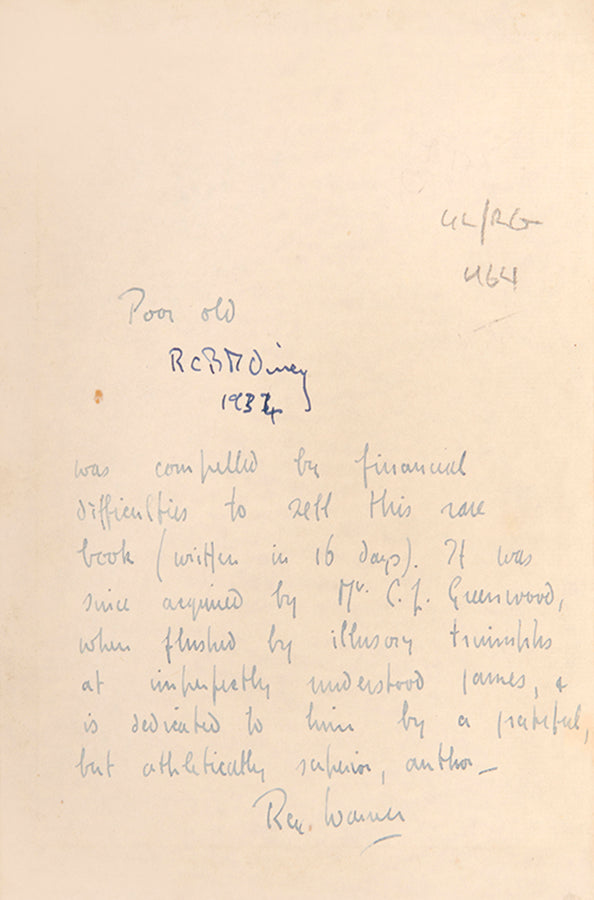 UL/RG
464
Poor old
R C B M
1934
was compelled by financial
difficulties to sell this rare
book (written in 16 days). It was
since acquired by Mr. C. J. Greenwood,
when flushed by illusory triumphs
at imperfectly understood games, &
is dedicated to him by a grateful,
but athletically superior, author_
Rex Warner